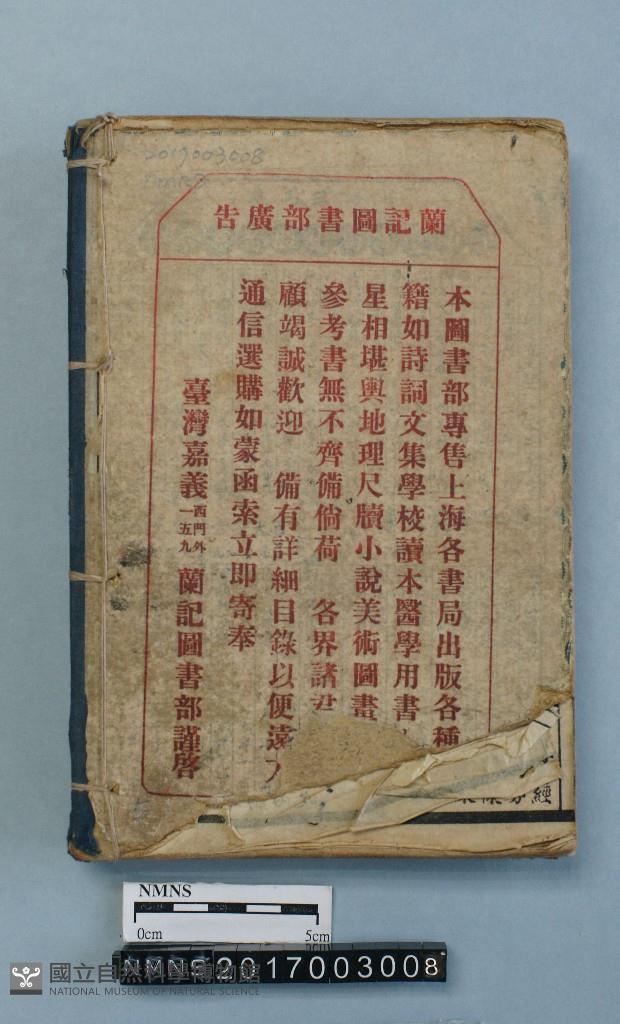 2017003008
蘭記圖書部廣告
本圖書部專售上海各書局出版各種
籍如詩詞文集學校讀本醫學用書
星相堪輿地理尺牘小說美術圖畫
參考書無不齊備倘荷 各界諸君
顧竭誠歡迎 備有詳細目錄以便遠
通信選購如蒙函索立即寄奉
臺灣嘉義西門外一五九 蘭記圖書部謹啓
經
NMNS
0cm 5cm
NMNS 2017003008
國立自然科學博物館
NATIONAL MUSEUM OF NATURAL SCIENCE